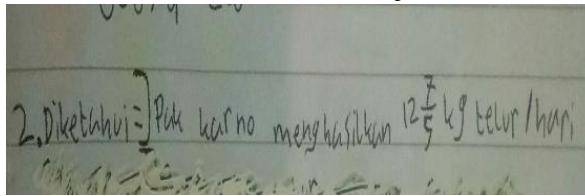 2. Diketahui = ] Pak karno menghasilkan 12 7/5 kg telur / hari